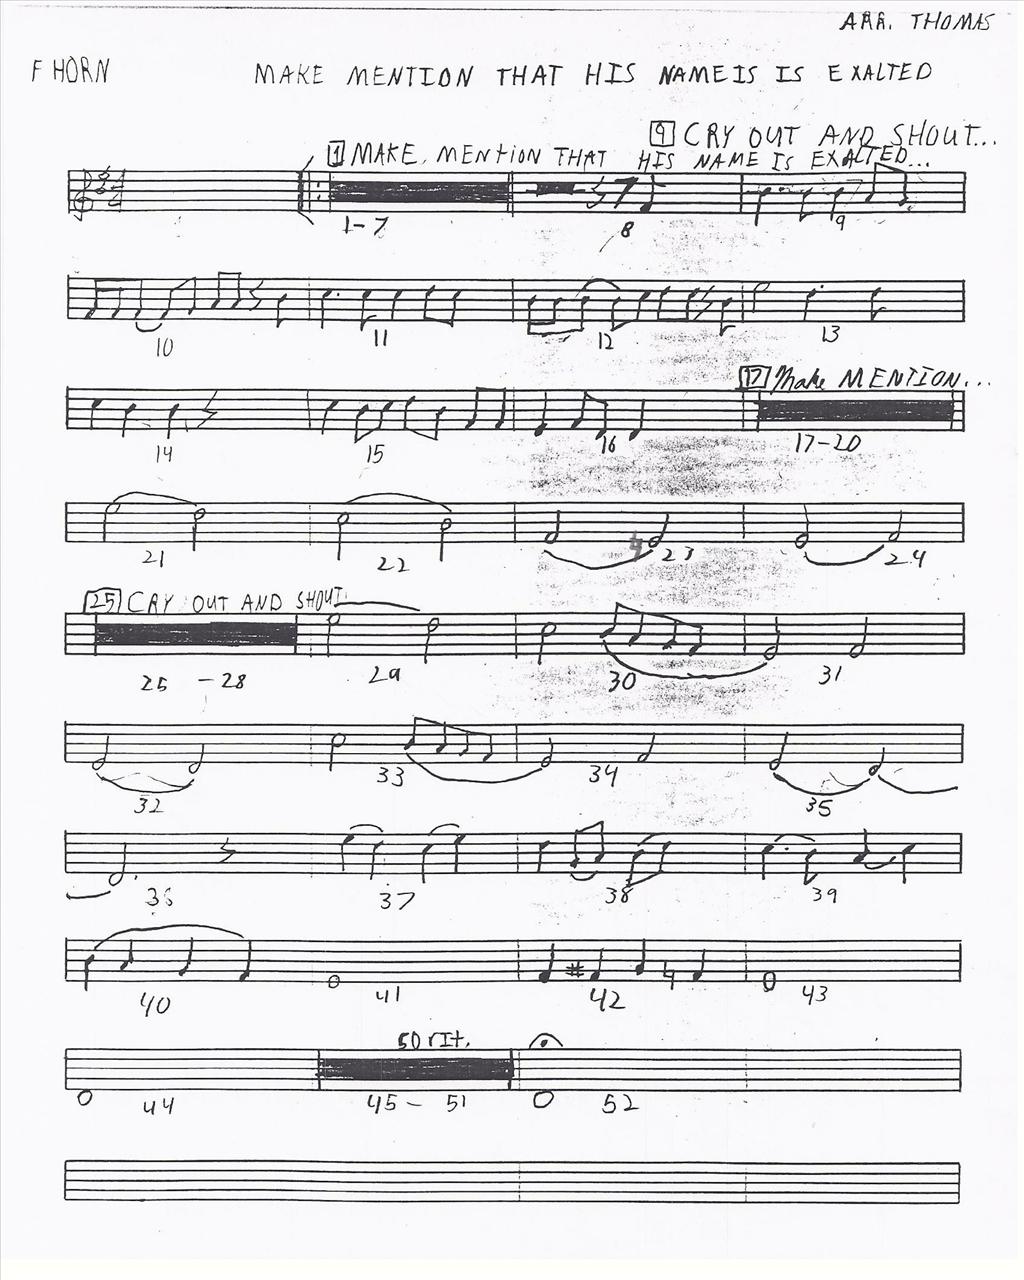 ARR. THOMAS
F HORN
MAKE MENTION THAT HIS NAME IS IS EXALTED
9 CRY OUT AND SHOUT...
1 MAKE MENTION THAT HIS NAME IS EXALTED...
1-7 8 9
10 11 12 13
17 Make MENTION...
14 15 16 17-20
21 22 23 24
25 CRY OUT AND SHOUT
25 -28 29 30 31
32 33 34 35
36 37 38 39
40 41 42 43
50 rIt.
44 45- 51 52